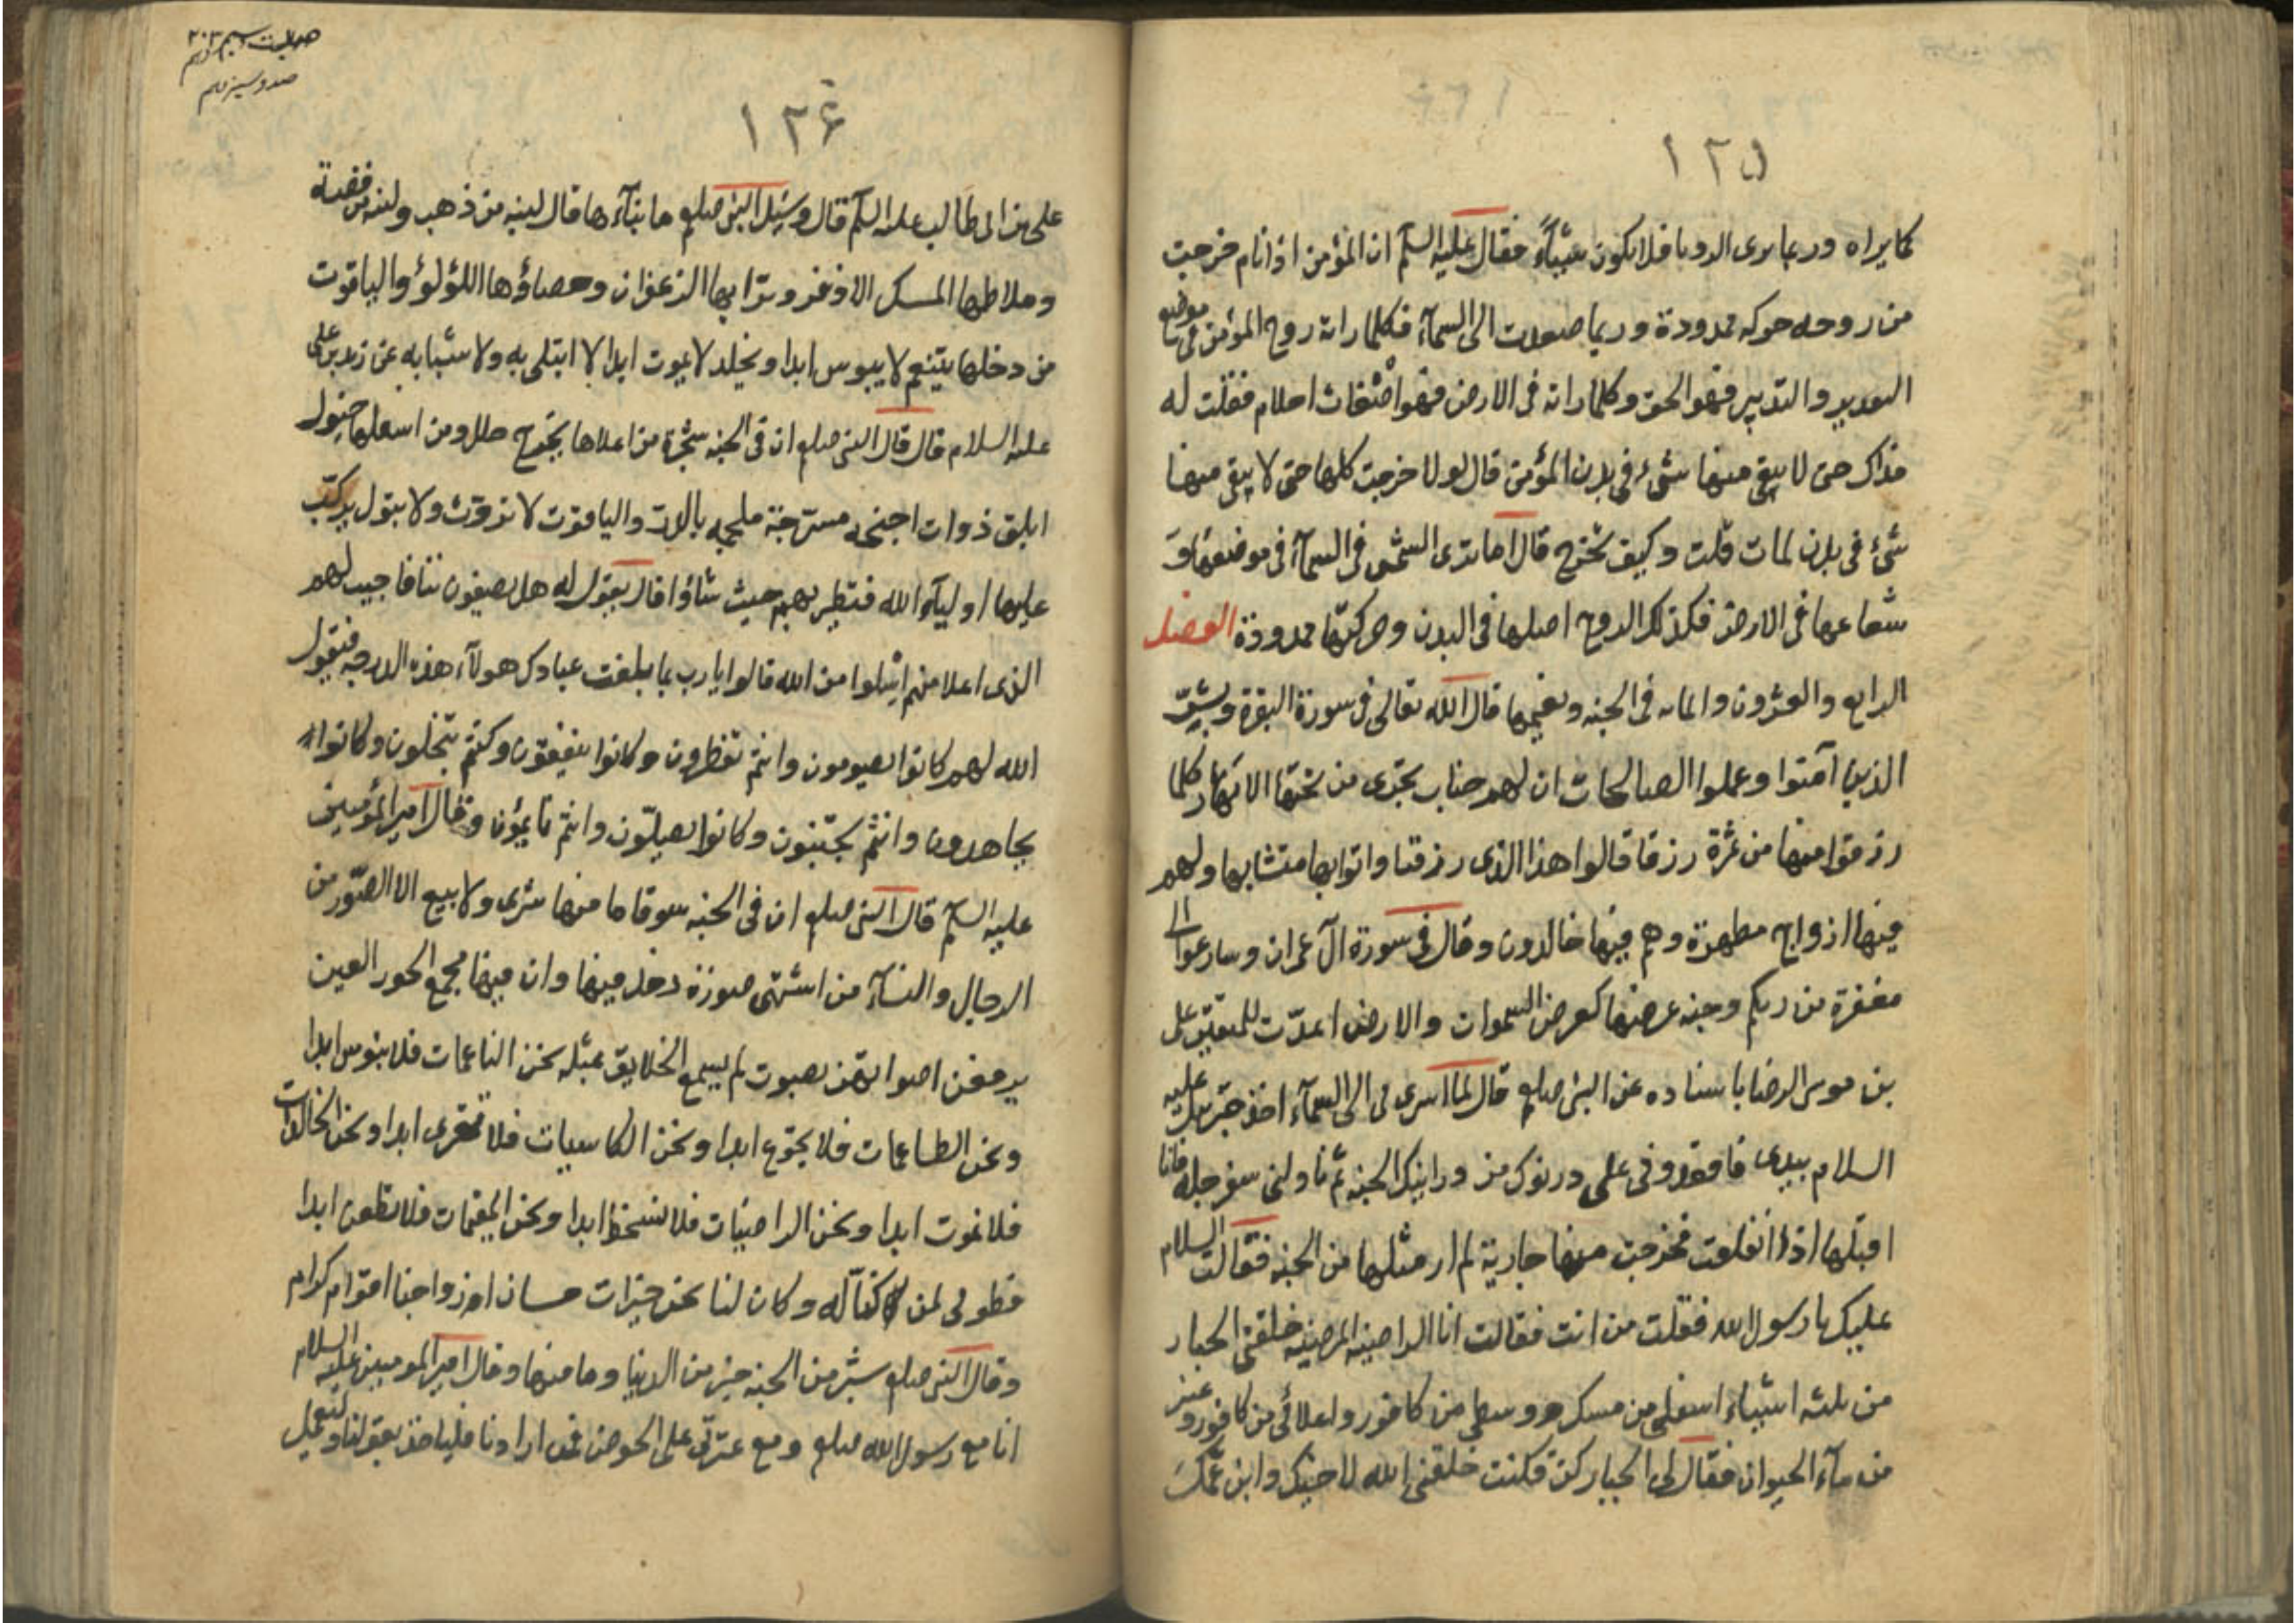 ١٢٥
كما يراه وربما يرى الرويا فلا يكون شيئاً فقال عليه السلم ان المؤمن اذا نام خرجت
من روحه حركه ممدودة وربما صعدت الى السمآء فكلما راته روح المؤمن فى موضع
التقدير والتدبير فهو الحق وكلما راته فى الارض فهو اضغاث احلام فقلت له
فذاك حتى لا يبقى منها شئ فى بدن المؤمن قال لو لا خرجت كلها حتى لا يبقى منها
شئ فى بدن لمات قلت وكيف تخرج قال اما ترى الشمس فى السمآء فى موضعها و
شعاعها فى الارض فكذلك الروح اصلها فى البدن وحركتها ممدودة الفصل
الرابع والعشرون والمايه فى الجنه ونعيمها قال الله تعالى فى سورة البقرة وبشر
الذين آمنوا وعملوا الصالحات ان لهم جنات تجرى من تحتها الانهار كلما
رزقوا منها من ثمرة رزقا قالوا هذا الذى رزقنا واتوا بها متشابها ولهم
فيها ازواج مطهرة وهم فيها خالدون وقال فى سورة آل عمران وسارعوا الى
مغفرة من ربكم وجنه عرضها كعرض السموات والارض اعدّت للمتقين على
بن موسى الرضا باسناده عن النبى صلعم قال لما اسرى لى الى السمآء اخذ جبرئيل عليه
السلام بيدى فاقعدوفى على درنوك من درانيك الجنه ثم ناولنى سفرجله فانا
اقبلها اذا انفلقت فخرجت منها جارية لم ار مثلها من الجنه فقالت السلام
عليك يا رسول الله فقلت من انت فقالت انا الراضيه المرضيه خلقنى الجبار
من ثلثه اشياء اسفلى من مسك ووسطى من كافور واعلائى من كافور وعنبر
من مآء الحيوان فقال لى الجبار كن فكنت خلقنى الله لاخيك وابن عمّك
١٢۶
على بن ابى طالب عليه السلم قال وسئل النبى صلعم ما بنآءها قال لبنه من ذهب ولبنه من فضة
وملاطها المسك الاذفر وترابها الزعفران وحصاؤها اللؤلؤ والياقوت
من دخلها يتنعم لا يبوس ابدا ويخلد لا يموت ابدا لا ابتلى به ولا شبابه عن زيد بن على
عليه السلام قال قال النبى صلعم ان فى الجنه شجرة من اعلاها يخرج حلل ومن اسفلها خيول
ابلق ذوات اجنحه مسرّجة ملجمه بالدر والياقوت لا تروث ولا يبول يركب
عليها اوليآء الله فتطير بهم حيث شاؤا قال يقول له هل يصيغون ننافا جيب لهم
الذى اعلا منهم انيلوا من الله قالوا يا رب بما بلغت عبادك هولآء هذه الدرجه فيقول
الله لهم كانوا يصومون وانتم تفطرون وكانوا ينفقون وكنتم تبخلون وكانوا
يجاهدون وانتم تجبّنون وكانوا يصلّون وانتم نايمون وقال امير المؤمنين
عليه السلم قال النبى صلعم ان فى الجنه سوقا ما منها شرى ولا بيع الا الصّور من
الرجال والنسآء من اشتهى صورة دخل فيها وان فيها مجمع الحور العين
يرفعن اصواتهن بصوت لم يسمع الخلايق بمثله نحن الناعمات فلا نبوس ابدا
ونحن الطاعمات فلا يجوع ابدا ونحن الكاسيات فلا تقرى ابدا ونحن الخالدات
فلا نموت ابدا ونحن الراضيات فلا نسخط ابدا ونحن المقيمات فلا نظعن ابدا
فطوبى لمن كنّا له وكان لنا نحن خيرات حسان ازواجنا اقوام كرام
وقال النبى صلعم شبر من الجنه خير من الدنيا وما منها وقال امير المومنين عليه السلام
انا مع رسول الله صلعم ومع عترتى على الحوض فمن ارادنا فلياخذ بقولنا وليعمل